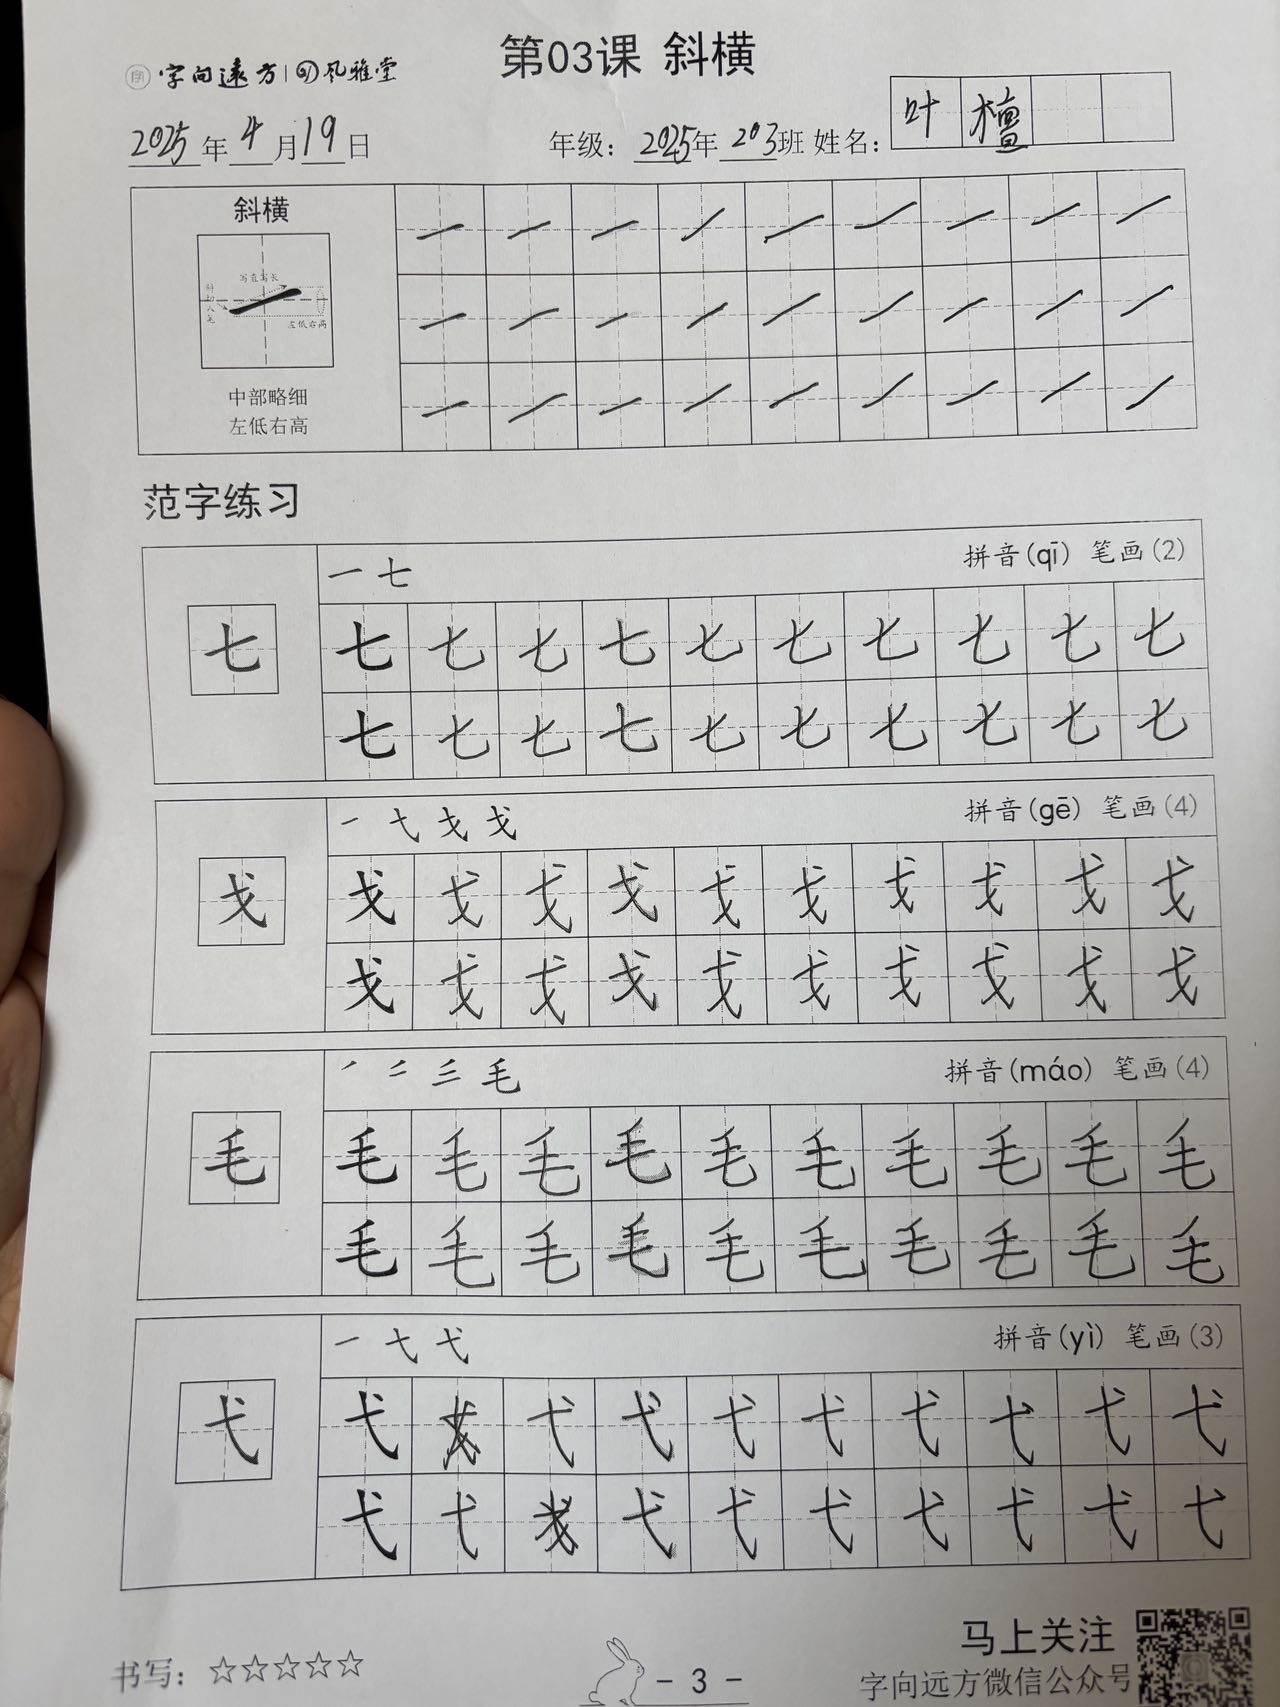 第03课 斜横
字向远方 风雅堂
2025年4月19日 年级：2025年203班 姓名：叶檀
斜横
写在写长
左低右高
中部略细
左低右高
范字练习
一 七 拼音(qī) 笔画(2)
七 七 七 七 七 七 七 七 七 七 七
七 七 七 七 七 七 七 七 七 七
一 弋 戈 戈 拼音(gē) 笔画(4)
戈 戈 戈 戈 戈 戈 戈 戈 戈 戈 戈
戈 戈 戈 戈 戈 戈 戈 戈 戈 戈
毛 拼音(máo) 笔画(4)
毛 毛 毛 毛 毛 毛 毛 毛 毛 毛 毛
毛 毛 毛 毛 毛 毛 毛 毛 毛 毛
一 弋 弋 拼音(yì) 笔画(3)
弋 弋 弋 弋 弋 弋 弋 弋 弋 弋
弋 弋 弋 弋 弋 弋 弋 弋 弋
书写：☆☆☆☆☆
- 3 -
马上关注
字向远方微信公众号